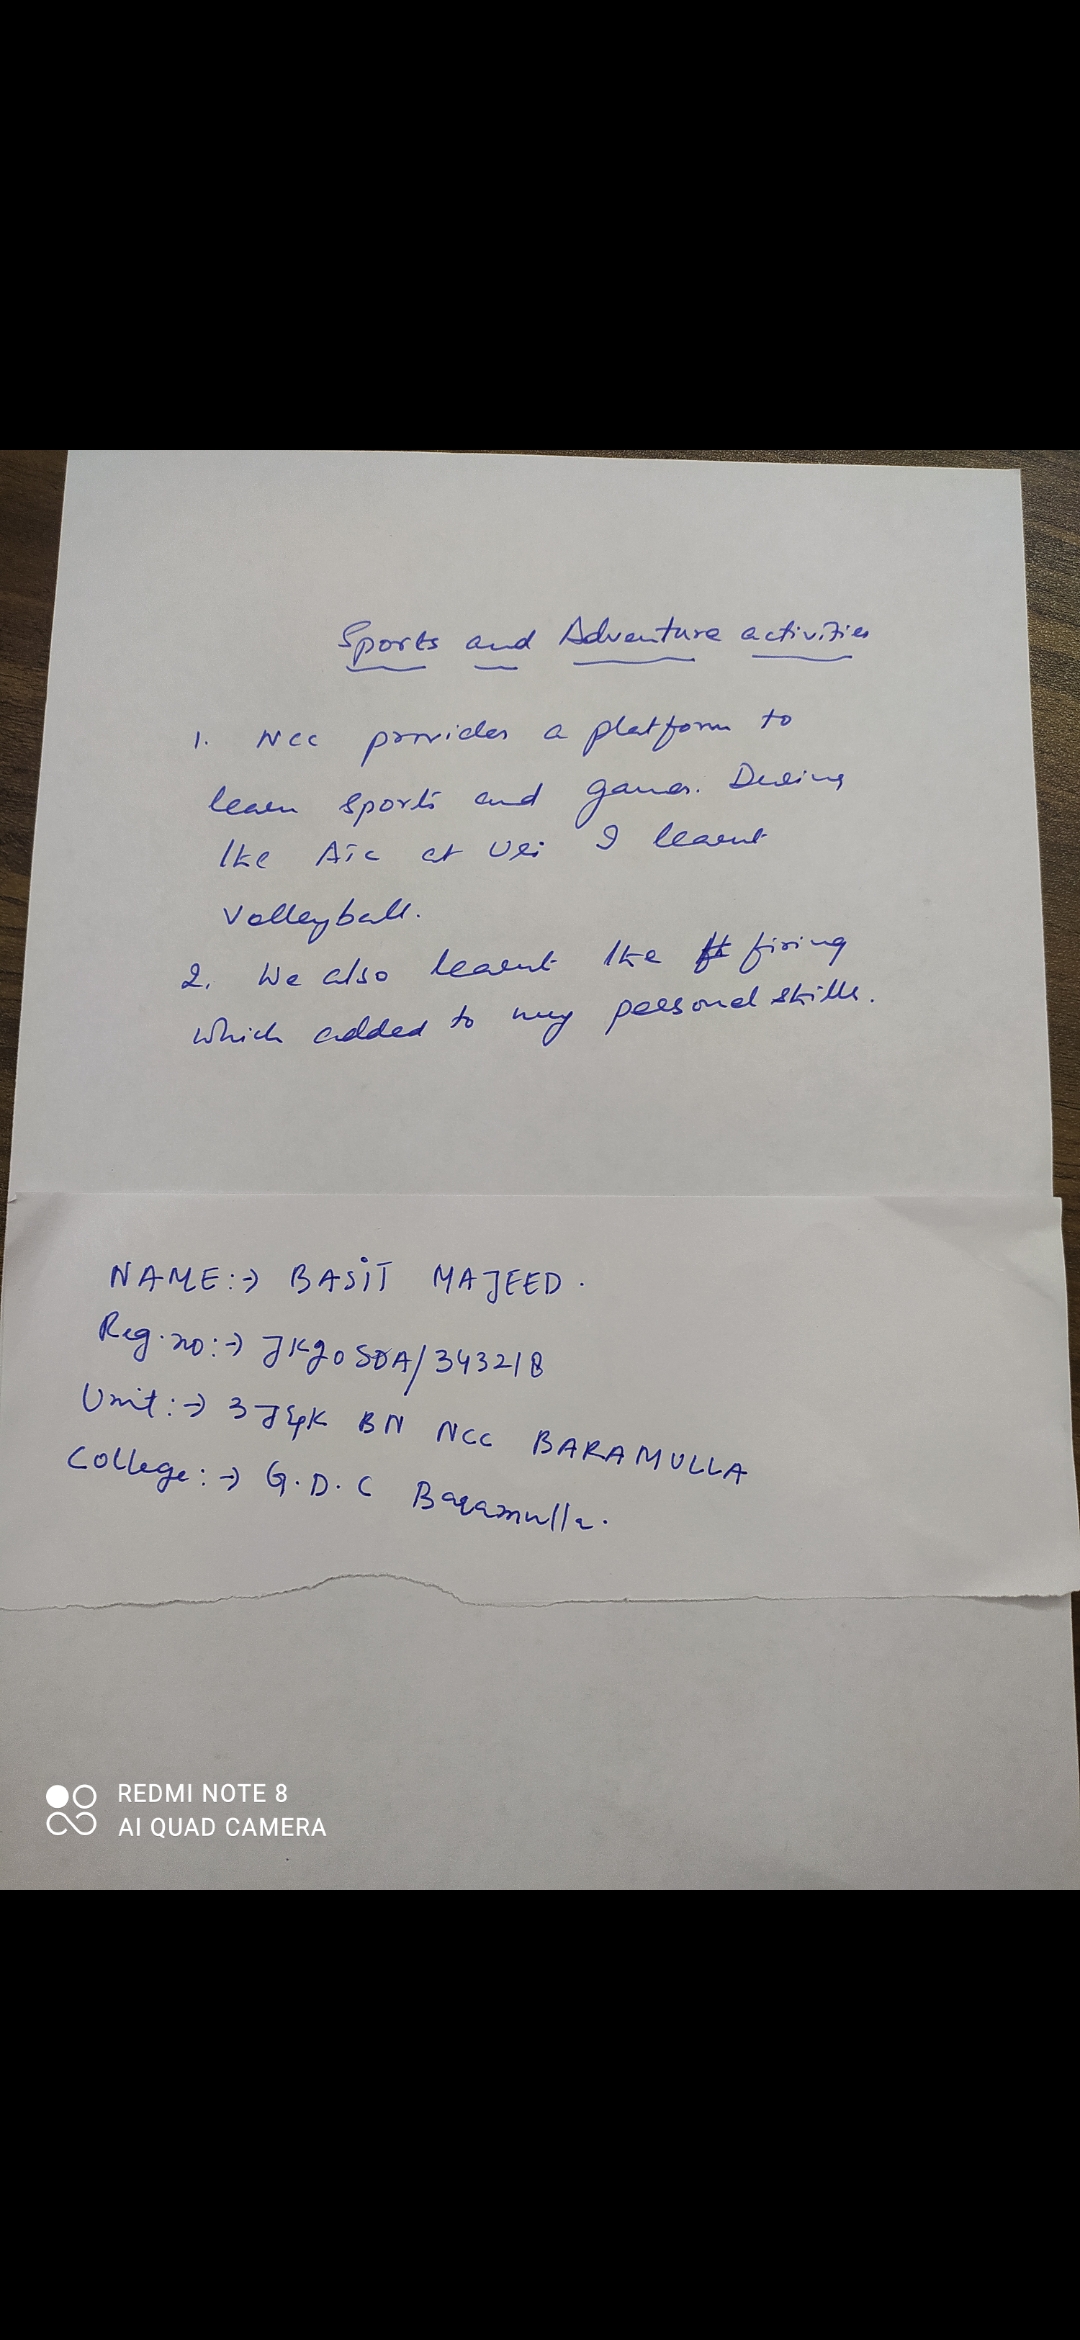 Sports and Adventure activities
1. NCC provides a platform to
learn sports and games. During
the ATC at Uri I learnt
Volleyball.
2. We also learnt the firing
which added to my personal skills.
NAME:→ BASIT MAJEED.
Reg.no:→ JK20SDA/343218
Unit:→ 3 J&K BN NCC BARAMULLA
College:→ G.D.C Baramulla.
REDMI NOTE 8
AI QUAD CAMERA